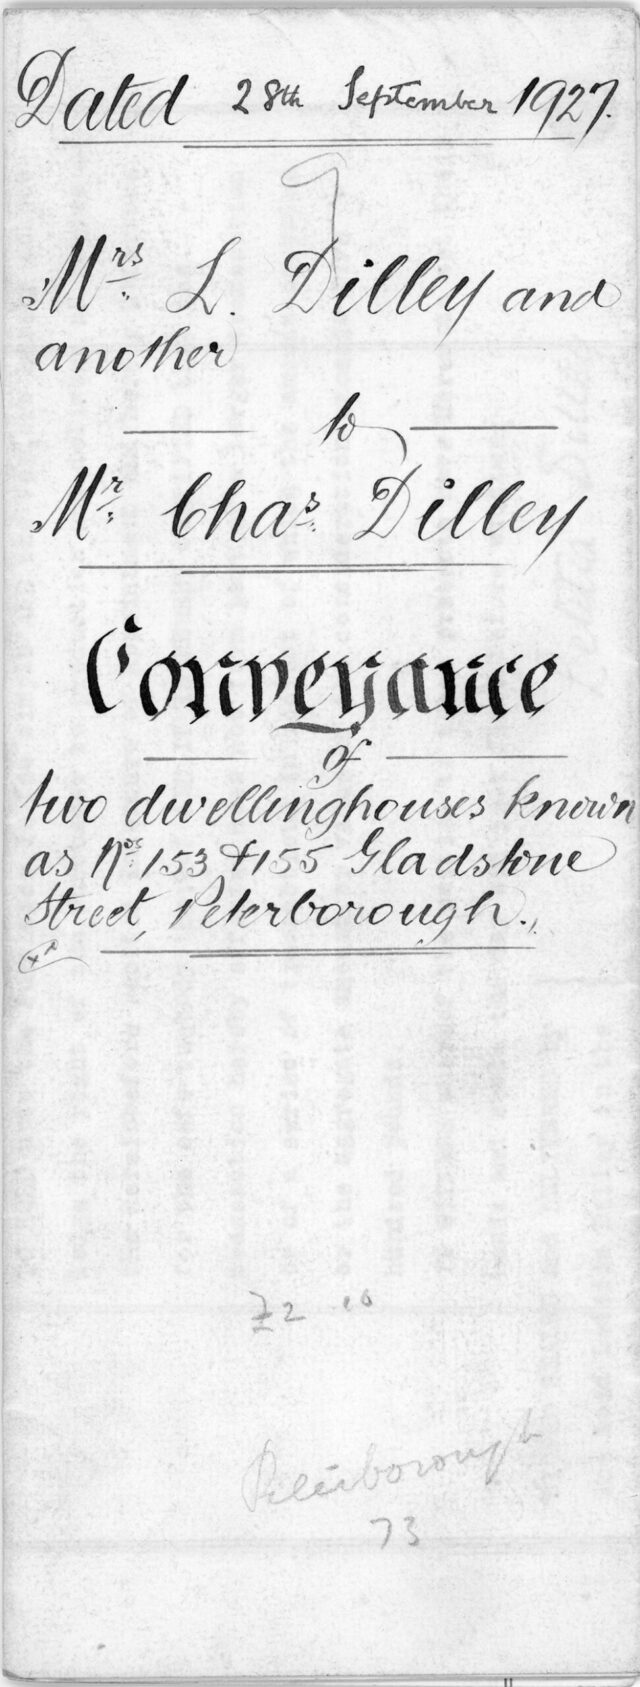 Dated 28th September 1927.
9
Mrs L. Dilley and
another
to
Mr Chas Dilley
Conveyance
of
two dwellinghouses known
as Nos 153 & 155 Gladstone
Street, Peterborough.
£2 10
Peterborough
73